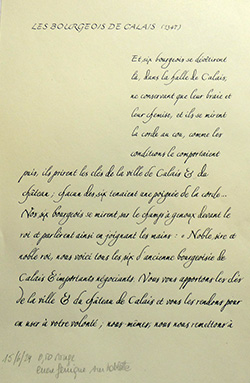 LES BOURGEOIS DE CALAIS (1347)
Et six bourgeois se dévêtirent
là, dans la halle de Calais,
ne conservant que leur braie et
leur chemise, et ils se mirent
la corde au cou, comme les
conditions le comportaient
puis, ils prirent les clés de la ville de Calais & du
château ; chacun des six tenaient une poignée de la corde...
Nos six bourgeois se mirent sur le champ à genoux devant le
roi et parlèrent ainsi en joignant les mains : « Noble sire et
noble roi, nous voici tous six d'ancienne bourgeoisie de
Calais & importants négociants. Nous vous apportons les clés
de la ville & du château de Calais et vous les rendons pour
en user à votre volonté ; nous-mêmes, nous nous remettons à
15/6/54 0,50 rouge